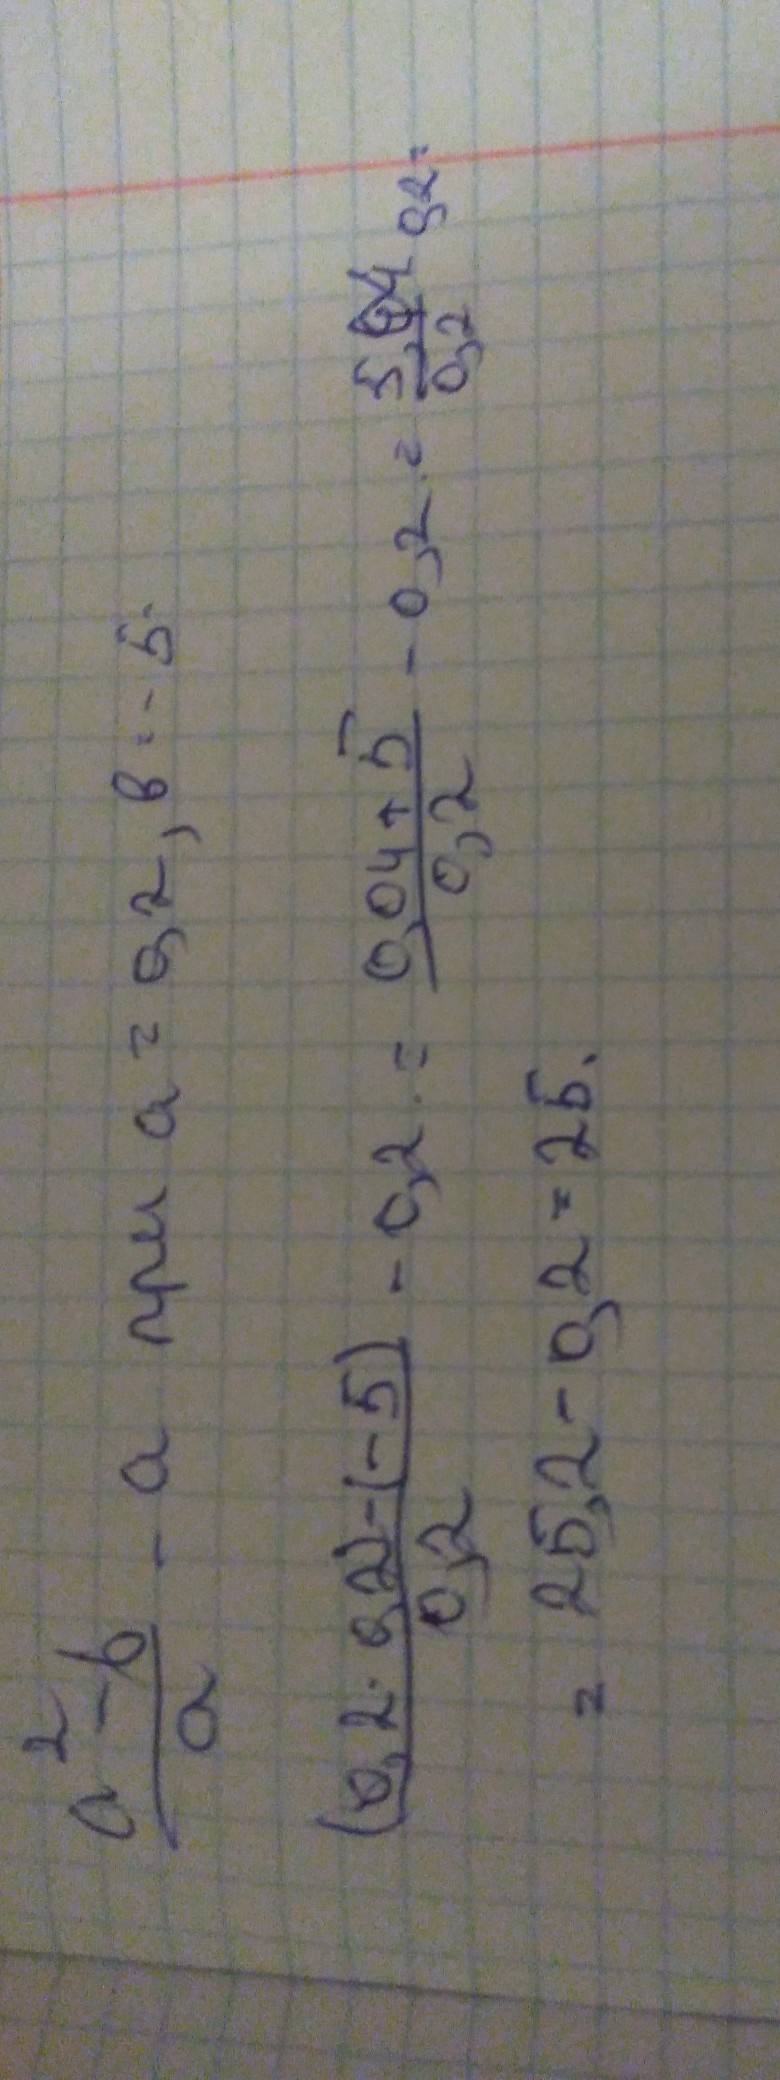 a² - b / a - a при a = 0,2, в = - 5.
(0,2 · 0,2) - (- 5) / 0,2 - 0,2 . = 0,04 + 5 / 0,2 - 0,2 . = 5,04 / 0,2 0,2 =
= 25,2 - 0,2 = 25.